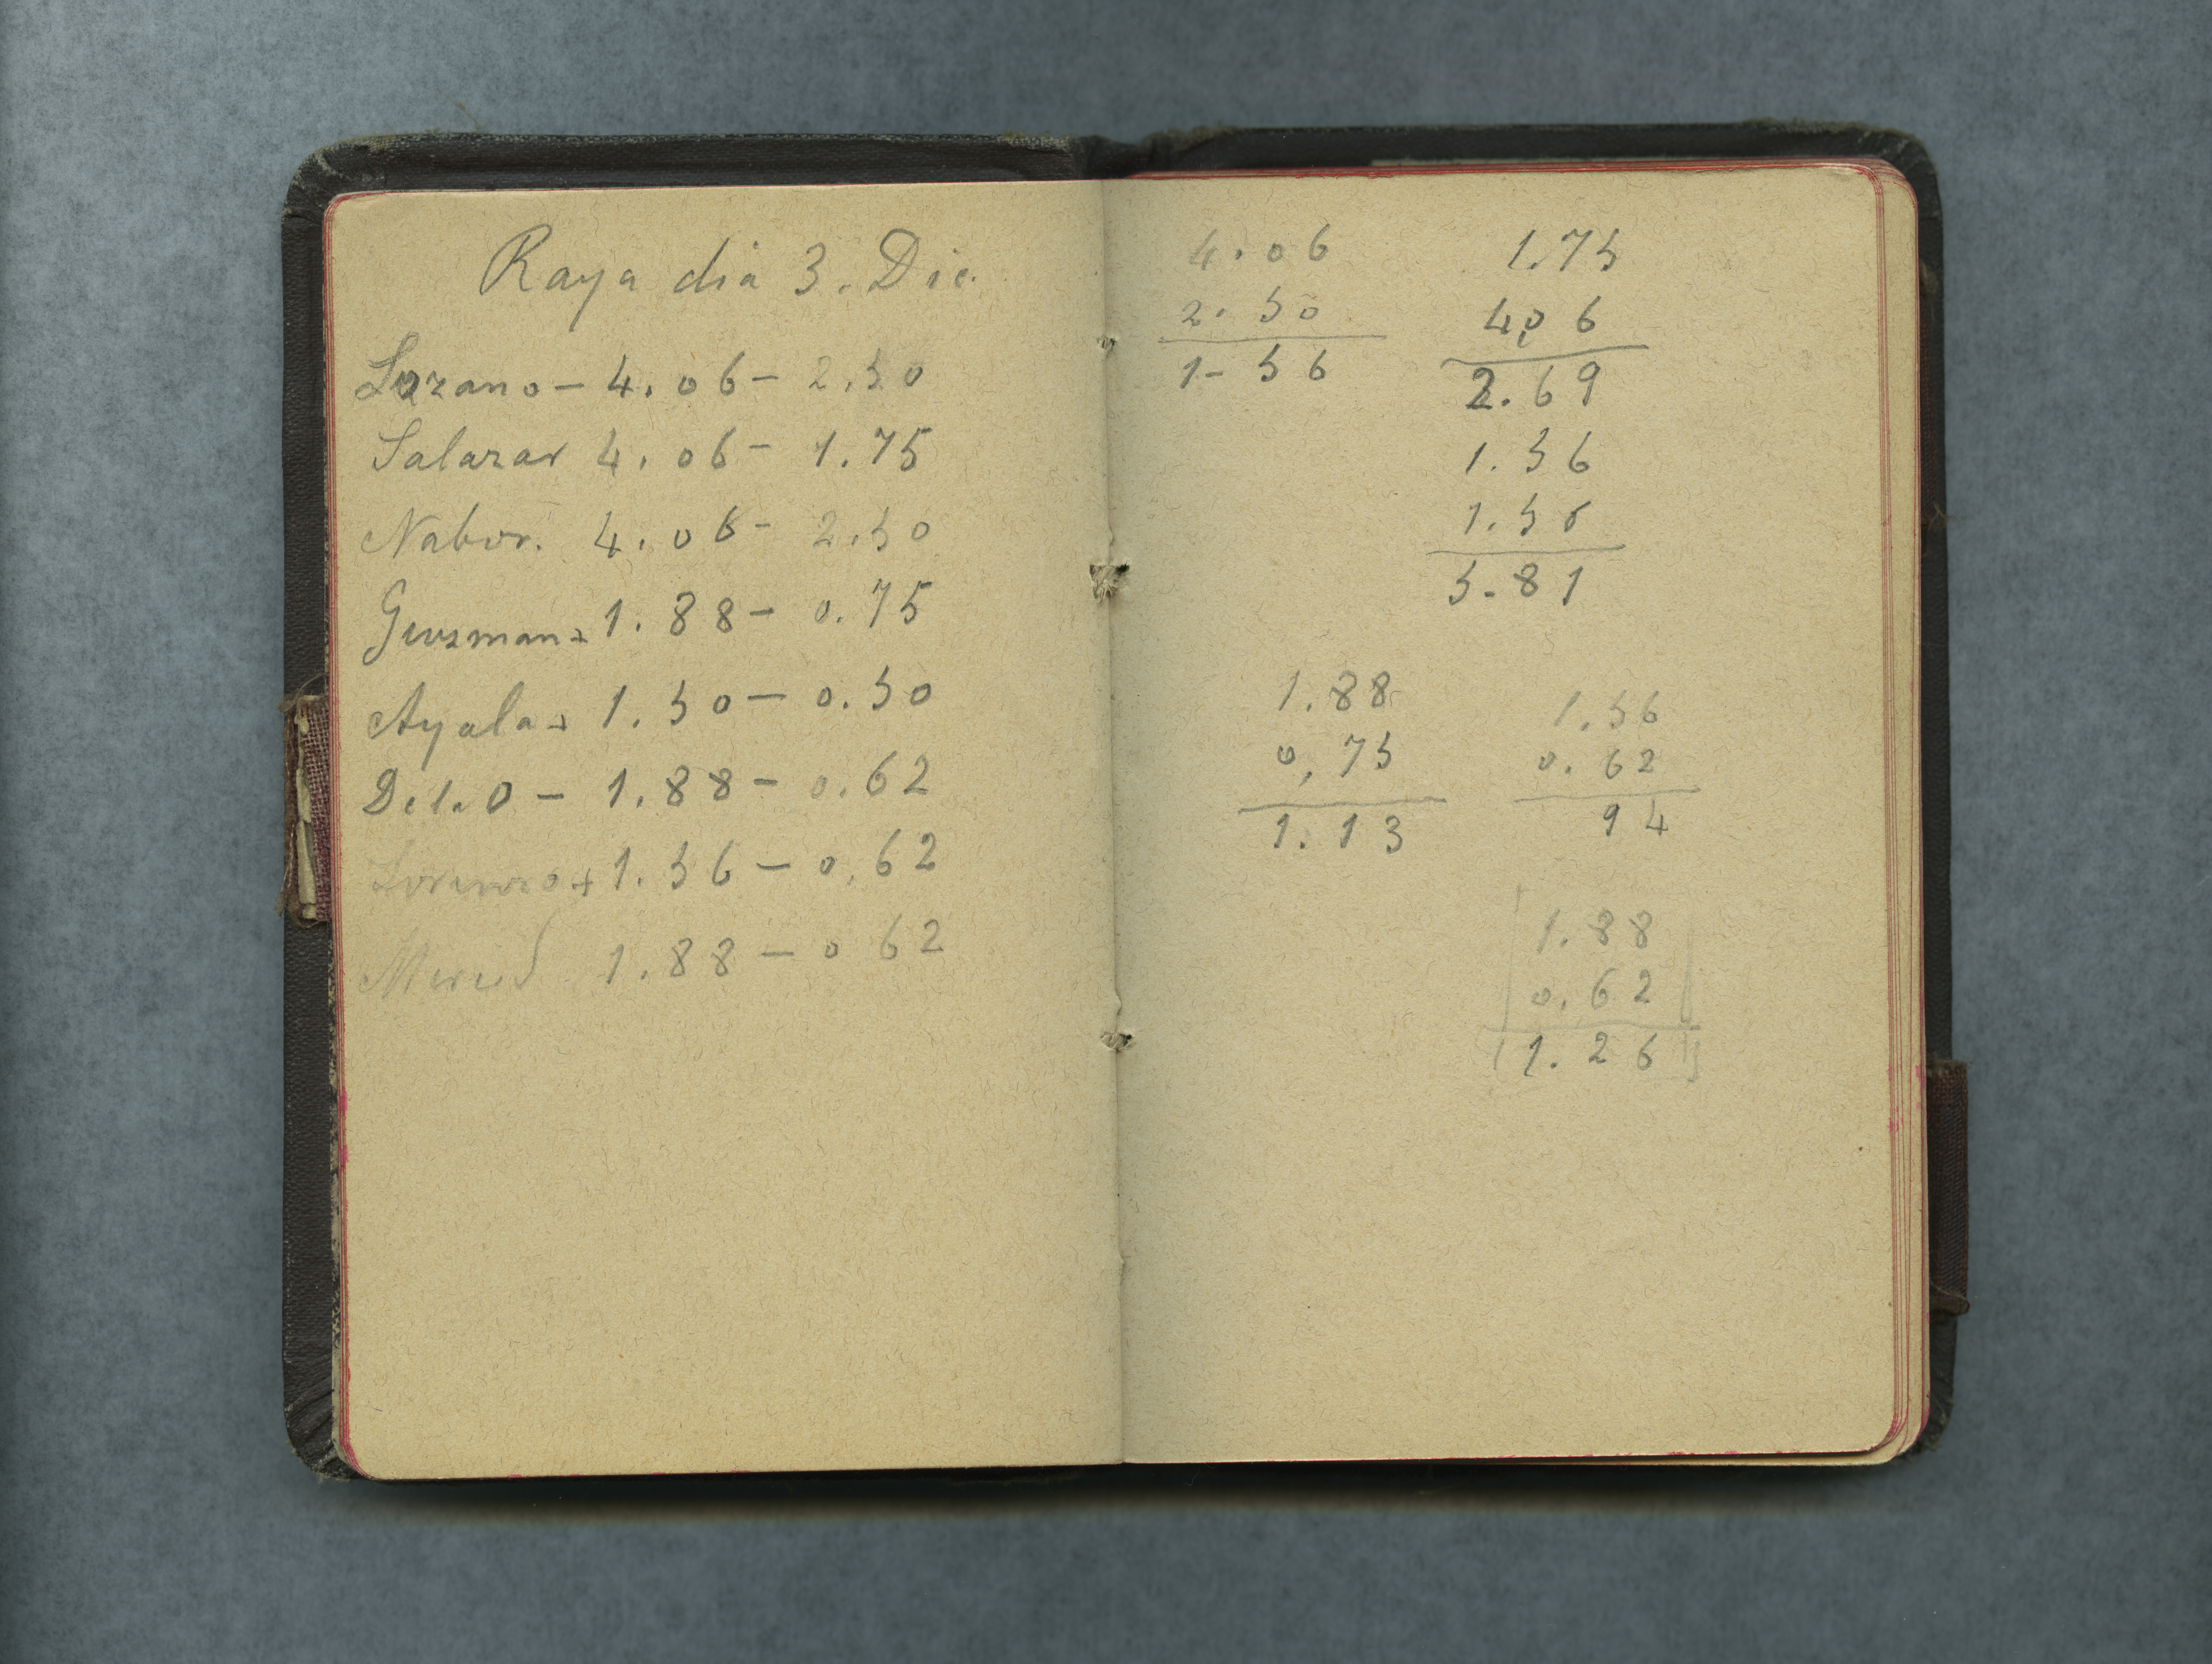 Raya dia 3. Dic.
Lozano - 4.06 - 2.50
Salazar 4.06 - 1.75
Nabor. 4.06 - 2.50
Guzman - 1.88 - 0.75
Ayala - 1.50 - 0.50
1.88 - 0.62
Lorenzo + 1.56 - 0.62
Merced 1.88 - 0 62
4.06
2.50
1-56
1.75
4,06
2.69
1.56
1.56
5.81
1.88
0,75
1.13
1.56
0.62
94
1.88
0.62
1.26